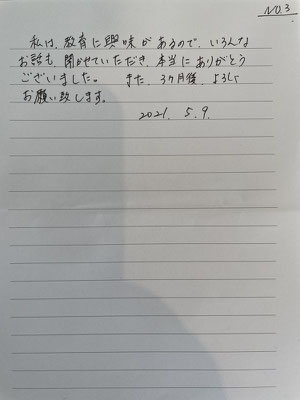 NO.3
私は、教育に興味があるので、いろんな
お話も聞かせていただき、本当にありがとう
ございました。 また、3ヶ月後、よろしく
お願い致します。
2021. 5.9.